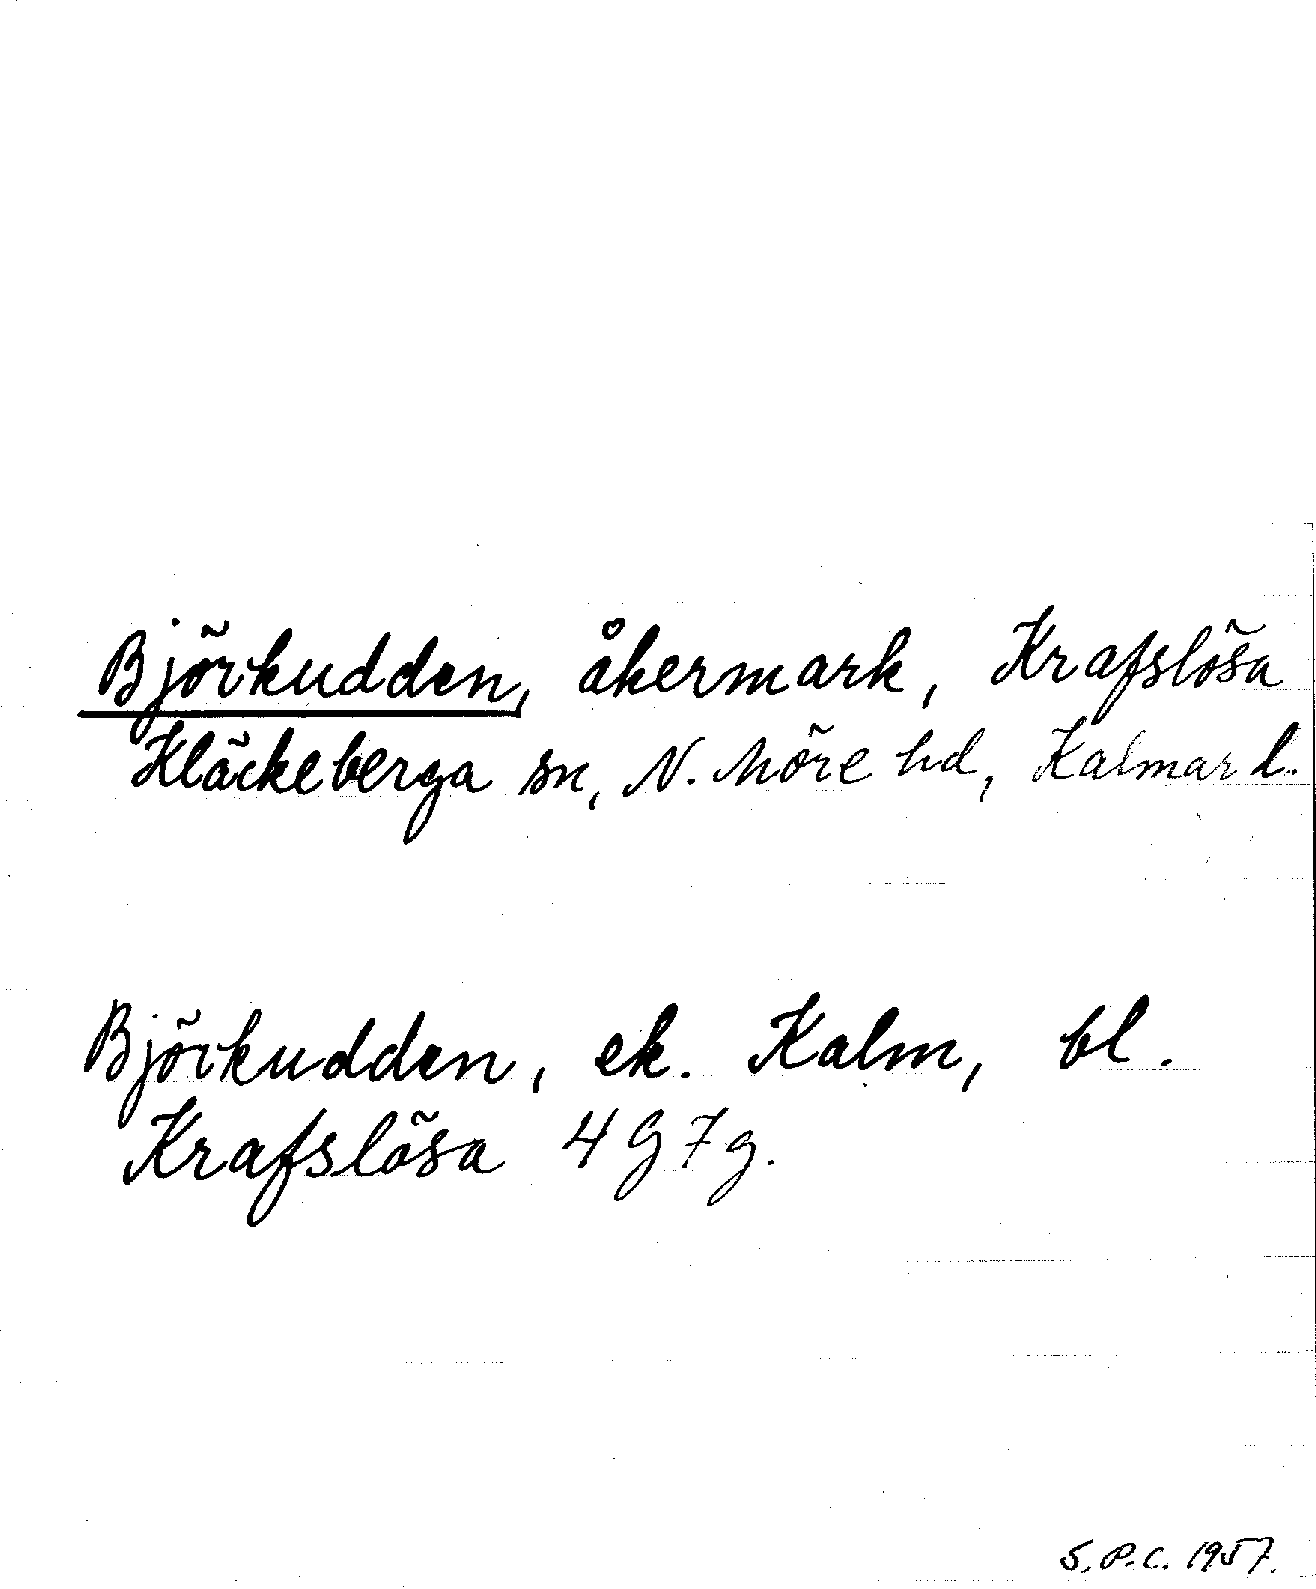 Björkudden, åkermark, Krafslösa
Kläckeberga sn, N. Möre hd, Kalmar l.
Björkudden, ek. Kalm, bl.
Krafslösa 4G7g.
S.P.C. 1957.